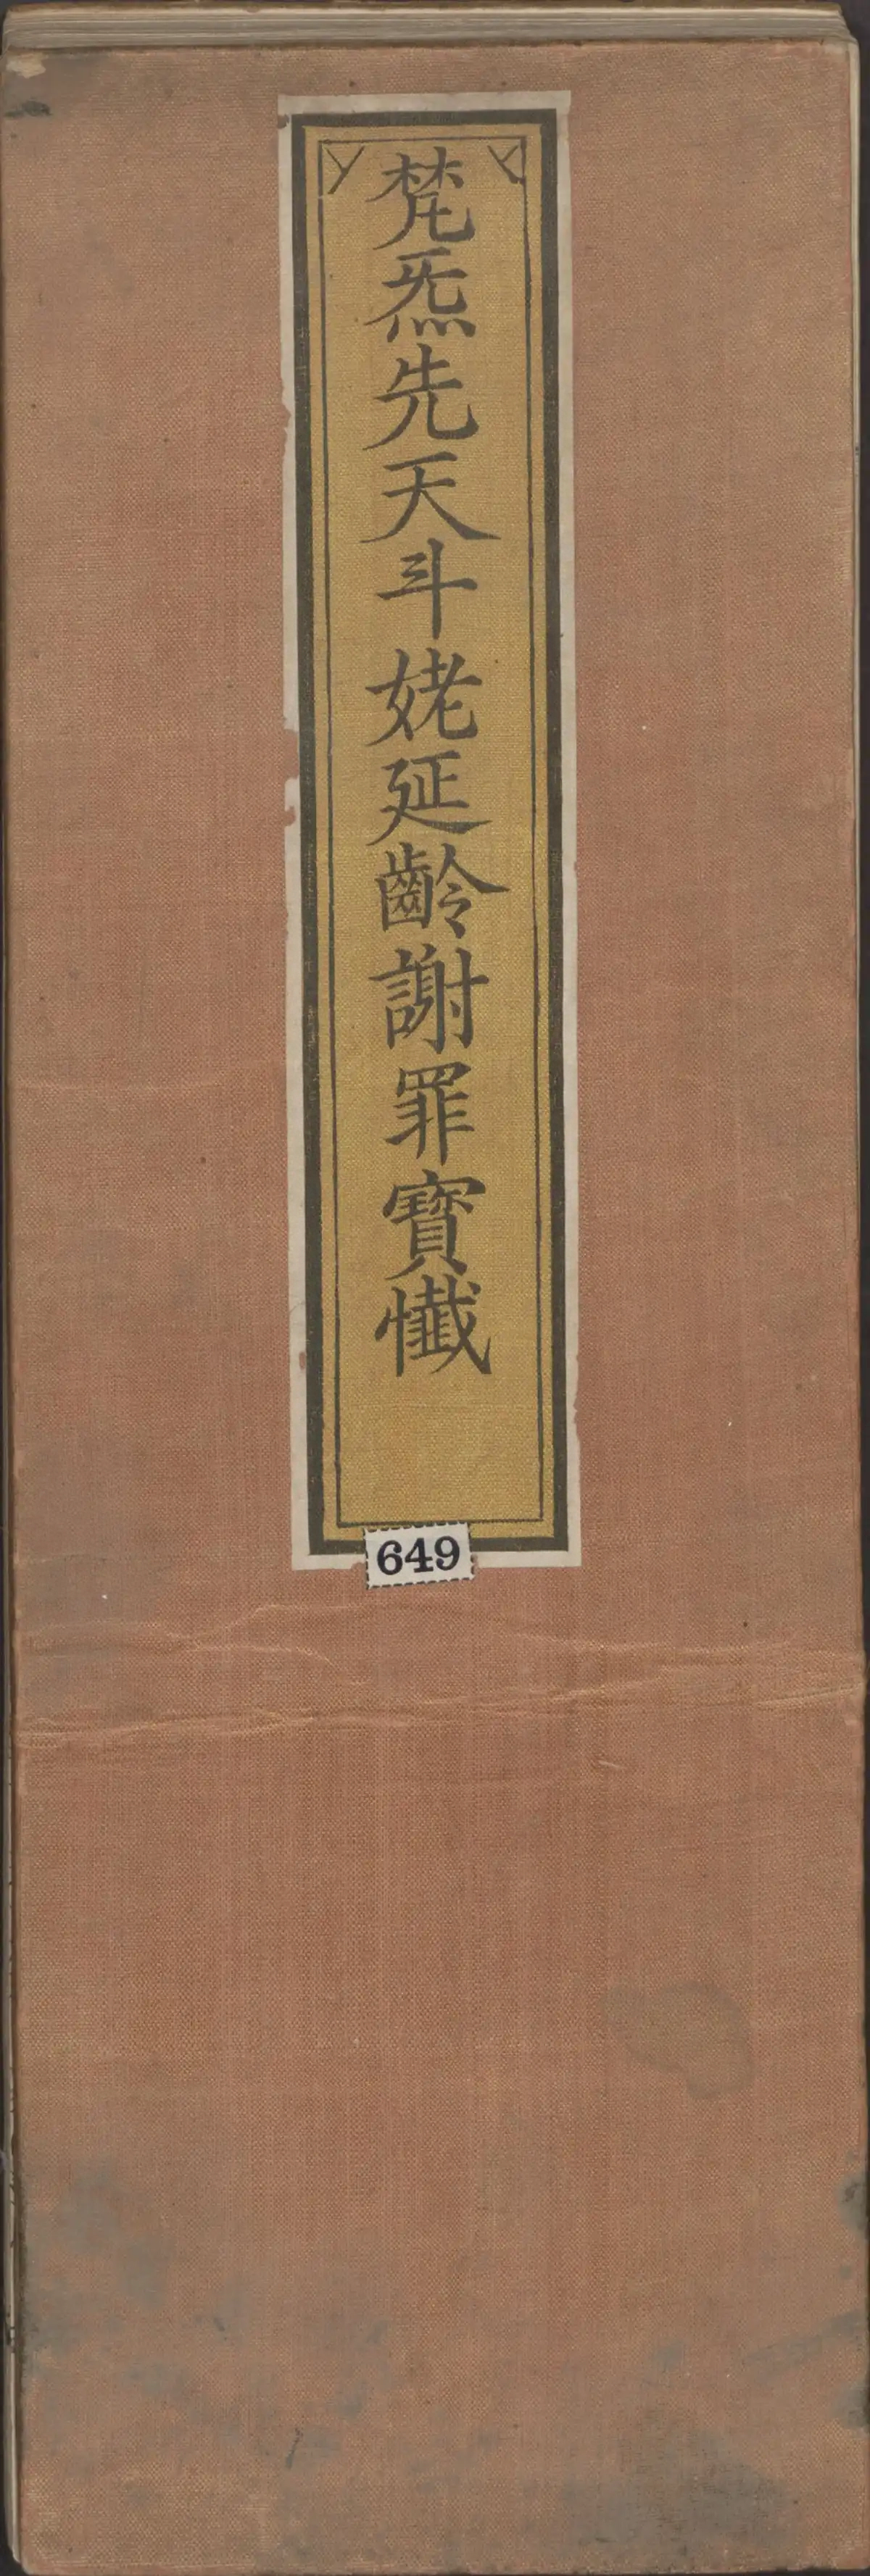 梵炁先天斗姥延齡謝罪寶懺
649